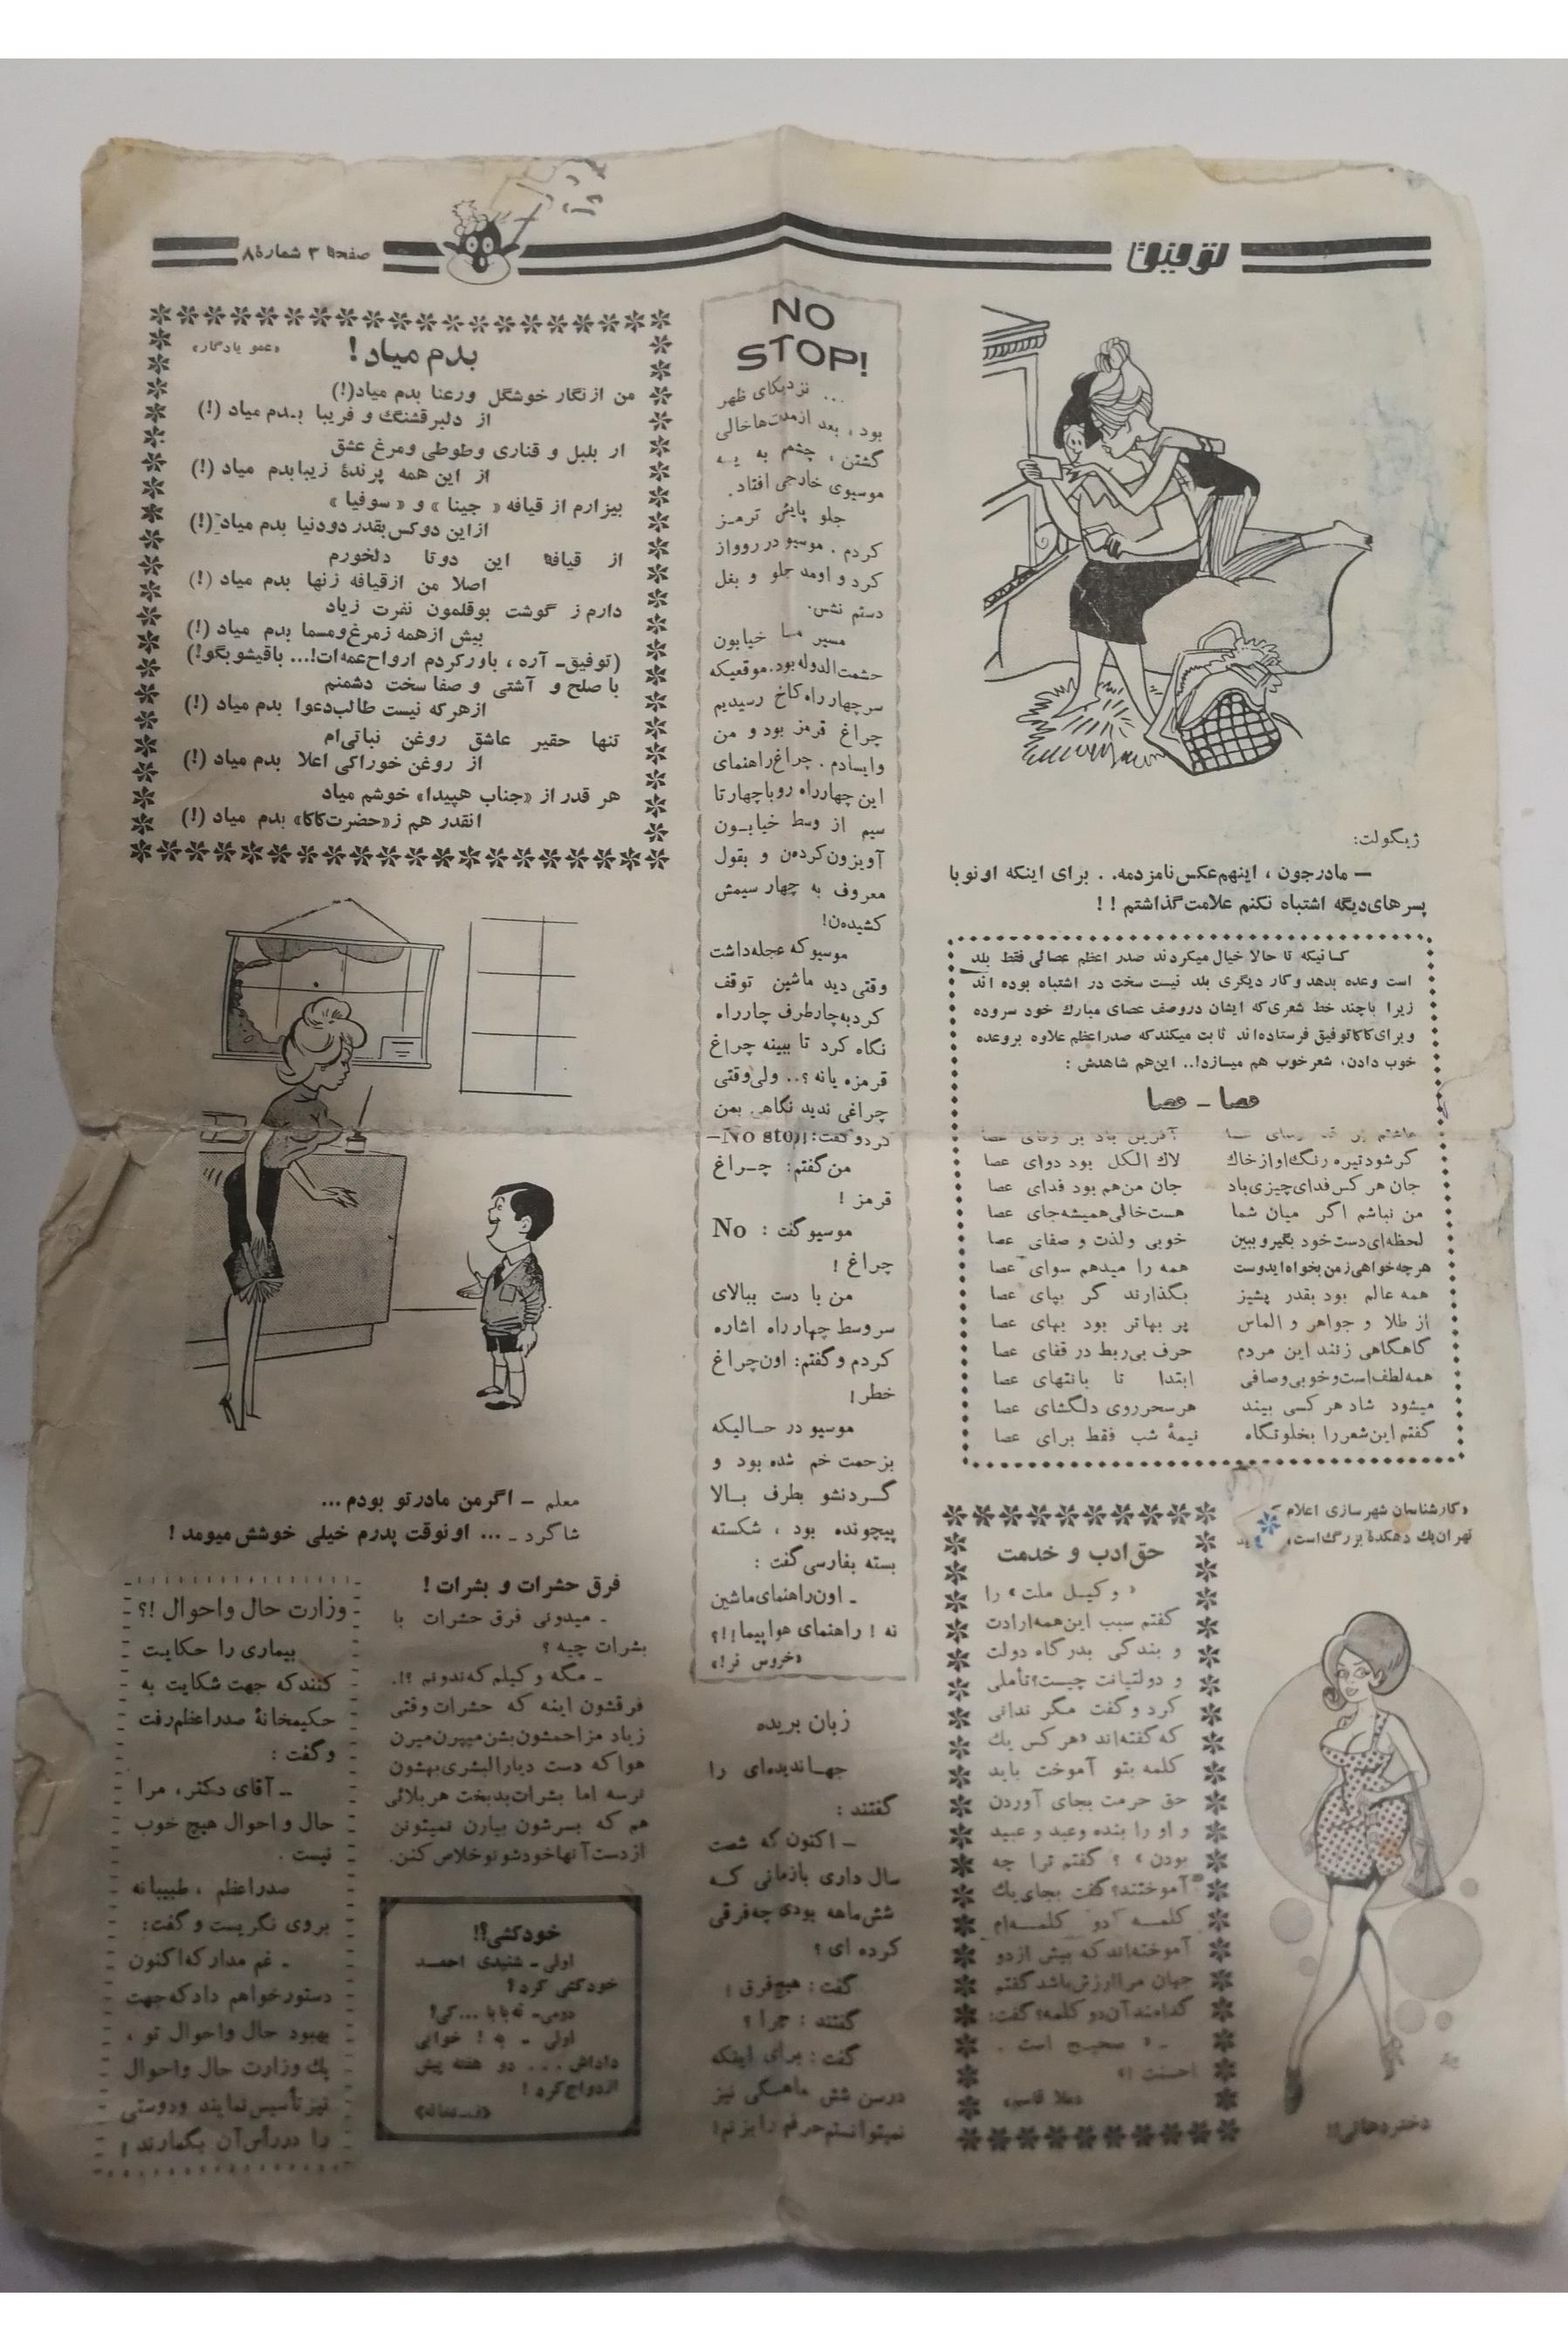 توفیق
صفحهٔ ۳ شمارهٔ ۸
ژیگولت:
— مادرجون ، اینهم‌عکس‌نامزدمه. . برای اینکه اونوبا
پسرهای‌دیگه اشتباه نکنم علامت‌گذاشتم ! !
کسانیکه تا حالا خیال میکردند صدر اعظم عصائی فقط بلد
است وعده بدهد وکار دیگری بلد نیست سخت در اشتباه بوده اند
زیرا باچند خط شعری‌که ایشان دروصف عصای مبارك خود سروده
وبرای‌کاکاتوفیق فرستاده‌اند ثابت میکندکه صدراعظم علاوه بروعده
خوب دادن، شعرخوب هم میسازد!.. این‌هم شاهدش :
عصا - عصا
آفرین باد بر وفای عصا
گرشودتیره رنگ‌اوازخاك لاك الکل بود دوای عصا
جان هر کس فدای‌چیزی‌باد جان من‌هم بود فدای عصا
من نباشم اگر میان شما هست‌خالی‌همیشه‌جای عصا
لحظه‌ای‌دست‌خود بگیروببین خوبی ولذت و صفای عصا
هرچه‌خواهی‌زمن‌بخواه‌ایدوست همه را میدهم سوای عصا
همه عالم بود بقدر پشیز بگذارند گر بپای عصا
از طلا و جواهر و الماس پر بهاتر بود بهای عصا
گاهگاهی زنند این مردم حرف بی‌ربط در قفای عصا
همه‌لطف‌است‌وخوبی‌وصافی ابتدا تا بانتهای عصا
میشود شاد هر کسی بیند هرسحرروی دلگشای عصا
گفتم این‌شعررا بخلوتگاه نیمهٔ شب فقط برای عصا
«کارشناسان شهرسازی اعلام
تهران‌یك دهکدهٔ بزرگ‌است»
دختردهاتی!!
حق‌ادب و خدمت
«وکیـل ملت» را
گفتم سبب این‌همه‌ارادت
و بندگی بدرگاه دولت
و دولتیانت چیست؟تأملی
کرد وگفت مگر ندانی
که‌گفته‌اند «هرکس یك
کلمه بتو آموخت باید
حق حرمت بجای آوردن
و او را بنده وعبد و عبید
بودن» ؟ گفتم ترا چه
آموختند؟گفت بجای‌یك
کلمـه دو کلمـه‌ام
آموخته‌اندکه بیش ازدو
جهان مراارزش‌باشدگفتم
کدامندآن‌دوکلمه؟گفت:
ـ « صحیح است .
احسنت !»
«ملا قاسم»
NO
STOP!
... نزدیکای ظهر
بود ، بعد ازمدت‌هاخالی
گشتن ، چشم به یـه
موسیوی خارجی افتاد.
جلو پایش ترمـز
کردم . موسیو در روواز
کرد و اومد جلو و بغل
دستم نشس.
مسیر مـا خیابون
حشمت‌الدوله‌بود.موقعیکه
سرچهارراه‌کاخ رسیدیم
چراغ قرمز بود و من
وایسادم . چراغ‌راهنمای
این چهارراه روباچهارتا
سیم از وسط خیابـون
آویزون‌کرده‌ن و بقول
معروف به چهار سیمش
کشیده‌ن!
موسیوکه عجله‌داشت
وقتی دید ماشین توقف
کردبه‌چارطرف چارراه
نگاه کرد تا ببینه چراغ
قرمزه یانه ؟.. ولی‌وقتی
چراغی ندید نگاهی بمن
کردوگفت: No stop!—
من‌گفتم: چـراغ
قرمز !
موسیوگفت : No
چراغ !
من با دست ببالای
سروسط چهارراه اشاره
کردم وگفتم: اون‌چراغ
خطر!
موسیو در حـالیکه
بزحمت خم شده بود و
گـردنشو بطرف بـالا
پیچونده بود ، شکسته
بسته بفارسی‌گفت :
ـ اون‌راهنمای‌ماشین
نه ! راهنمای هواپیما!!؟
«خروس نر!»
زبان بریده
جهـاندیده‌ای را
گفتند :
ـ اکنون که شصت
سال داری بازمانی کـه
شش‌ماهه بودی چه‌فرقی
کرده ای ؟
گفت : هیچ‌فرق !
گفتند : چرا ؟
گفت : برای اینکه
درسن شش ماهـگی نیز
نمیتوانستم‌حرفم رابزنم!
بدم میاد !
«عمو یادگار»
من ازنگار خوشگل ورعنا بدم میاد(!)
از دلبرقشنگ و فریبا بـدم میاد (!)
از بلبل و قناری وطوطی ومرغ عشق
از این همه پرندهٔ زیبابدم میاد (!)
بیزارم از قیافه « جینا » و « سوفیا »
ازاین دوکس‌بقدر دودنیا بدم میاد(!)
از قیافهٔ این دوتا دلخورم
اصلا من ازقیافه زنها بدم میاد (!)
دارم ز گوشت بوقلمون نفرت زیاد
بیش ازهمه زمرغ‌ومسما بدم میاد (!)
(توفیق‌ـ آره ، باورکردم ارواح‌عمه‌ات!... باقیشوبگو!)
باصلح و آشتی و صفا سخت دشمنم
ازهرکه نیست طالب‌دعوا بدم میاد (!)
تنها حقیر عاشق روغن نباتی‌ام
از روغن خوراکی اعلا بدم میاد (!)
هر قدر از «جناب هپیدا» خوشم میاد
انقدر هم ز«حضرت‌کاکا» بدم میاد (!)
معلم ـ اگرمن مادرتو بودم ...
شاگرد ـ ... اونوقت پدرم خیلی خوشش‌میومد !
فرق حشرات و بشرات !
ـ میدونی فرق حشرات با
بشرات چیه ؟
ـ مگه وکیلم که‌ندونم ؟!.
فرقشون اینه که حشرات وقتی
زیاد مزاحمشون‌بشن‌میپرن‌میرن
هواکه دست دیارالبشری‌بهشون
نرسه اما بشرات‌بدبخت هربلائی
هم که بسرشون بیارن نمیتونن
ازدست‌آنهاخودشونوخلاص‌کنن.
خودکشی؟!
اولی‌ـ شنیدی احمـد
خودکشی کرد؟
دومی‌ـ نه‌بابا ...کی!
اولی ـ به ! خوابی
داداش ... دو هفته پیش
ازدواج‌کرد !
وزارت حال واحوال !؟
بیماری را حکایت
کنندکه جهت شکایت به
حکیمخانهٔ صدراعظم‌رفت
وگفت :
ـ آقای دکتر، مرا
حال واحوال هیچ خوب
نیست .
صدراعظم ، طبیبانه
بروی نگریست وگفت:
ـ غم مدارکه‌اکنون
دستورخواهم دادکه‌جهت
بهبود حال واحوال تو ،
یك وزارت حال واحوال
نیزتأسیس‌نمایند ودوستی
را دررأس‌آن بگمارند !